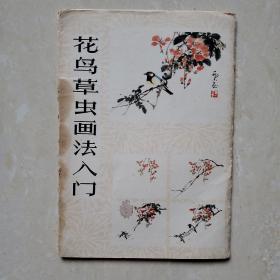 花鸟草虫画法入门